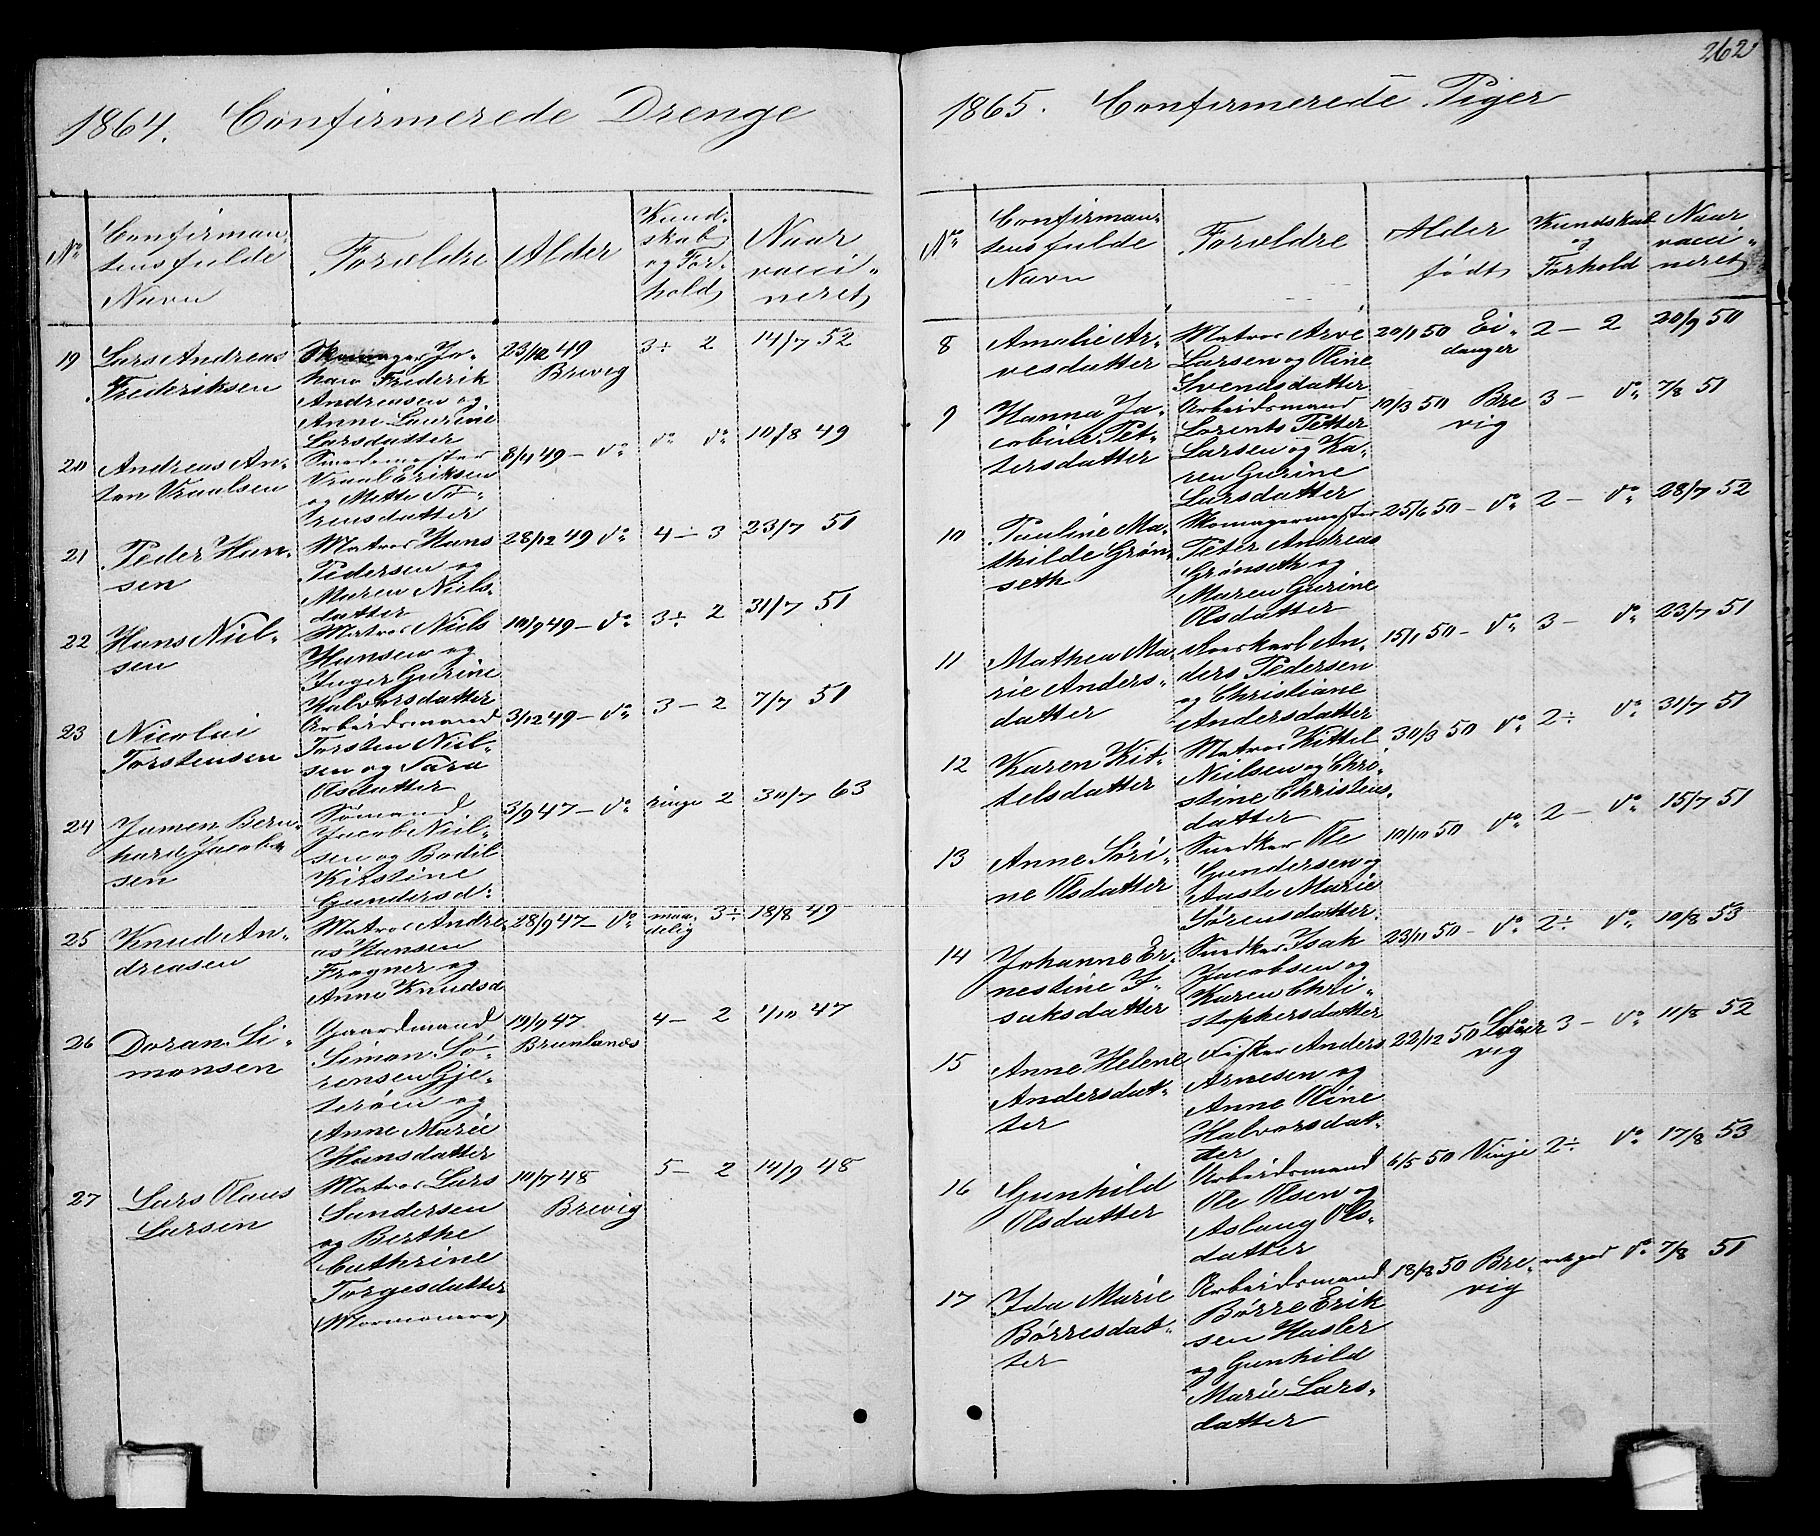 1864. Confirmerede Drenge
No
Confirman-
tens fulde
Navn
Forældre
Alder
Kund-
skab
og For-
hold
Naar
vacci-
neret
19
Lars Andreas
Frederiksen
Skomager Jo-
han Frederik
Andreasen og
Anne Laurine
Larsdatter
23/12 49
Brevig
3÷ 2
14/7 52
20
Andreas An-
ton Vraalsen
Smedemester
Vraal Eriksen
og Mette Tø-
rensdatter
8/11 49 – do
do do
10/8 49
21
Peder Han-
sen
Matros Hans
Pedersen og
Maren Niels-
datter
28/12 49 do
4 – 3
23/7 51
22
Hans Niel-
sen
Matros Niels
Hansen og
Inger Gurine
Halvorsdatter
10/9 49 – do
3÷ 2
31/7 51
23
Nicolai
Torstensen
Arbeidsmand
Torsten Niel-
sen og Sara
Olsdatter
3/12 49 – do
3 – 2
7/7 51
24
Jamen Bern-
hard Jacob-
sen
Sømand
Jacob Niel-
sen og Bodil
Kirstine
Gundersd:
3/9 47 – do
ringe 2
30/7 63
25
Knud An-
dreasen
Matros Andre-
as Hansen
Frogner og
Anne Knudsd
28/9 47 – do
maa-
delig 3÷
18/8 49
26
Doran Si-
monsen
Gaardmand
Simon Sø-
rensen Gje-
terøen og
Anne Marie
Hansdatter
19/9 47
Brunlanæs
4 – 2
4/10 47
27
Lars Olaus
Larsen
Matros Lars
Sandersen
og Berthe
Cathrine
Torgesdatter
(Mormonere)
10/7 48
Brevig
5 – 2
14/9 48
262
1865. Confirmerede Piger
No
Confirman-
tens fulde
Navn
Forældre
Alder
født
Kundskab
og
Forhold
Naar
vacci-
neret
8
Amalie Ar-
vesdatter
Matros Arve
Larsen og Oline
Svendsdatter
20/1 50 Ei-
danger
2 – 2
20/9 50
9
Hanna Ja-
cobine Pet-
tersdatter
Arbeidsmand
Lorents Petter
Larsen og Ka-
ren Gurine
Larsdatter
10/3 50 Bre
vig
3 – do
7/8 51
10
Pauline Ma-
thilde Grøn-
seth
Skomagermester
Peter Andreas
Grønseth og
Maren Gurine
Olsdatter
25/6 50 – do
2 – do
28/7 52
11
Mathea Ma-
rie Anders-
datter
Anders Pedersen
og Christiane
Andersdatter
15/1 50 – do
3 – do
23/7 51
12
Karen Kit-
telsdatter
Matros Kittel
Nielsen og Chri-
stine Christens-
datter
30/3 50 do
2÷ do
31/7 51
13
Anne Søri-
ne Olsdatter
Snedker Ole
Gundersen og
Aaste Marie
Sørensdatter
10/10 50 do
2 – do
15/7 51
14
Johanne Er-
nestine I-
saksdatter
Snedker Isak
Jacobsen og
Karen Chri-
stophersdatter
23/11 50 – do
2÷ do
10/8 53
15
Anne Helene
Andersdat-
ter
Fisker Anders
Arnesen og
Anne Oline
Halvorsdat-
ter
22/12 50
vig
3 – do
11/8 52
16
Gunhild
Olsdatter
Arbeidsmand
Ole Olsen og
Aslaug Ols-
datter
6/5 50 Vinje
2÷ do
17/8 53
17
Ida Marie
Børresdat-
ter
Arbeidsmand
Børre Erik
sen Hasler
og Gunhild
Marie Lars-
datter
18/8 50 Bre-
vig
meget do
7/8 51